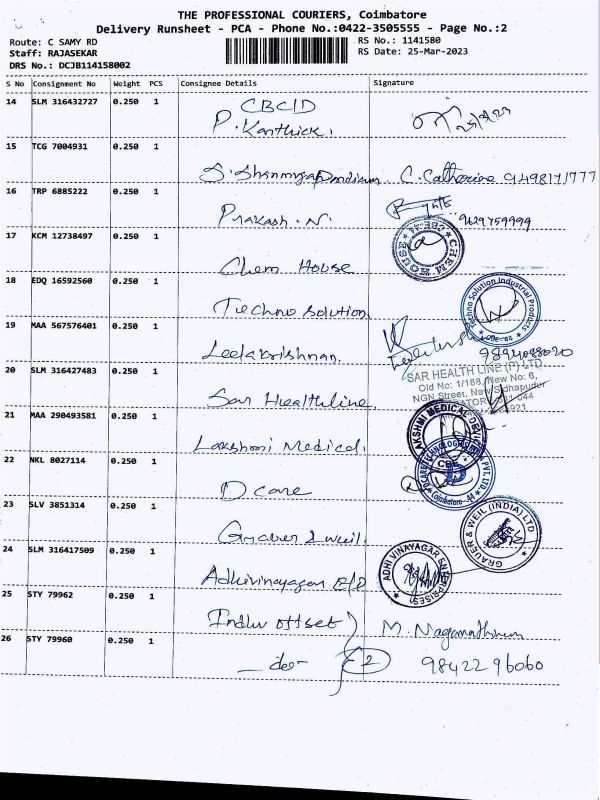 THE PROFESSIONAL COURIERS, Coimbatore
Delivery Runsheet - PCA - Phone No.:0422-3505555 - Page No.:2
Route: C SAMY RD
RS No.: 1141580
Staff: RAJASEKAR
RS Date: 25-Mar-2023
DRS No.: DCJB114158002
S No Consignment No Weight PCS Consignee Details Signature
14 SLM 316432727 0.250 1 CBCID
P. Karthick.
15 TCG 7004931 0.250 1
S. C. Catherine 9498171777
16 TRP 6885222 0.250 1
Prakash. N. 9629759999
17 KCM 12738497 0.250 1
Chem House CHEM HOUSE CBE-44
18 EDQ 16592560 0.250 1
Techno Solution Techno Solution Industrial Products
19 MAA 567576401 0.250 1
Leelakrishnan. 9894088020
20 SLM 316427483 0.250 1
SAR HEALTH LINE (P) LTD
Old No: 1/188, New No: 6,
NGN Street, New Sidhapudur
Sar Healthline.
21 MAA 290493581 0.250 1
Lakshmi Medical.
22 NKL 8027114 0.250 1
D care
23 SLV 3851314 0.250 1
Grauer & weil. GRAUER & WEIL (INDIA) LTD
24 SLM 316417509 0.250 1
Adhivinayagar E/P ADHI VINAYAGAR ENTERPRISES
25 STY 79962 0.250 1
Indhu offset M. 
26 STY 79960 0.250 1
— do — 2 98422 96060